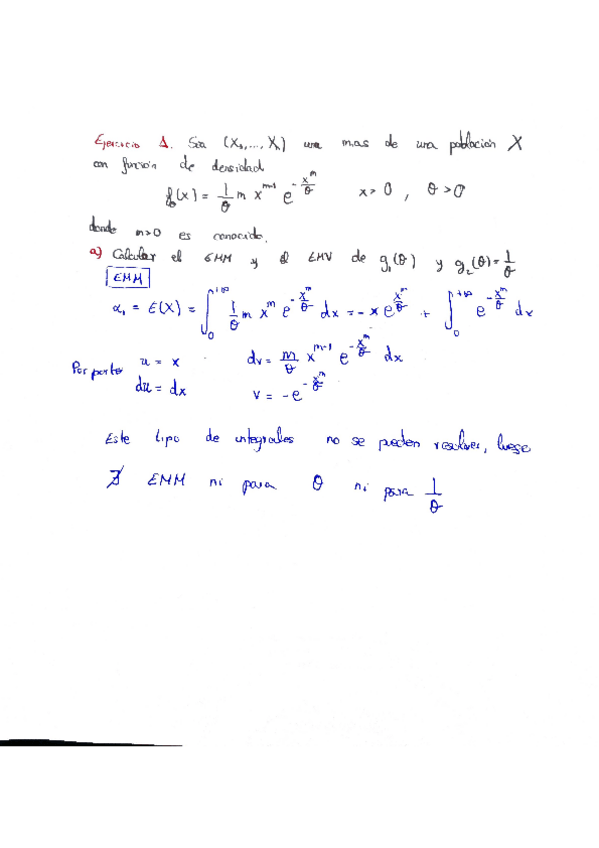 Ejercicio 1. Sea (X₁,..., Xₙ) una m.a.s de una población X
con función de densidad
f_θ(x) = 1/θ m x^(m-1) e^(-x^m/θ) x > 0 , θ > 0
donde m>0 es conocido.
a) Calcular el EMM y el EMV de g₁(θ) y g₂(θ)= 1/θ
EMM
α₁ = E(X) = ∫₀^(+∞) 1/θ m x^m e^(-x^m/θ) dx = - x e^(-x^m/θ) + ∫₀^(+∞) e^(-x^m/θ) dx
Por partes u = x dv = m/θ x^(m-1) e^(-x^m/θ) dx
du = dx v = - e^(-x^m/θ)
Este tipo de integrales no se pueden resolver, luego
∄ EMM ni para θ ni para 1/θ